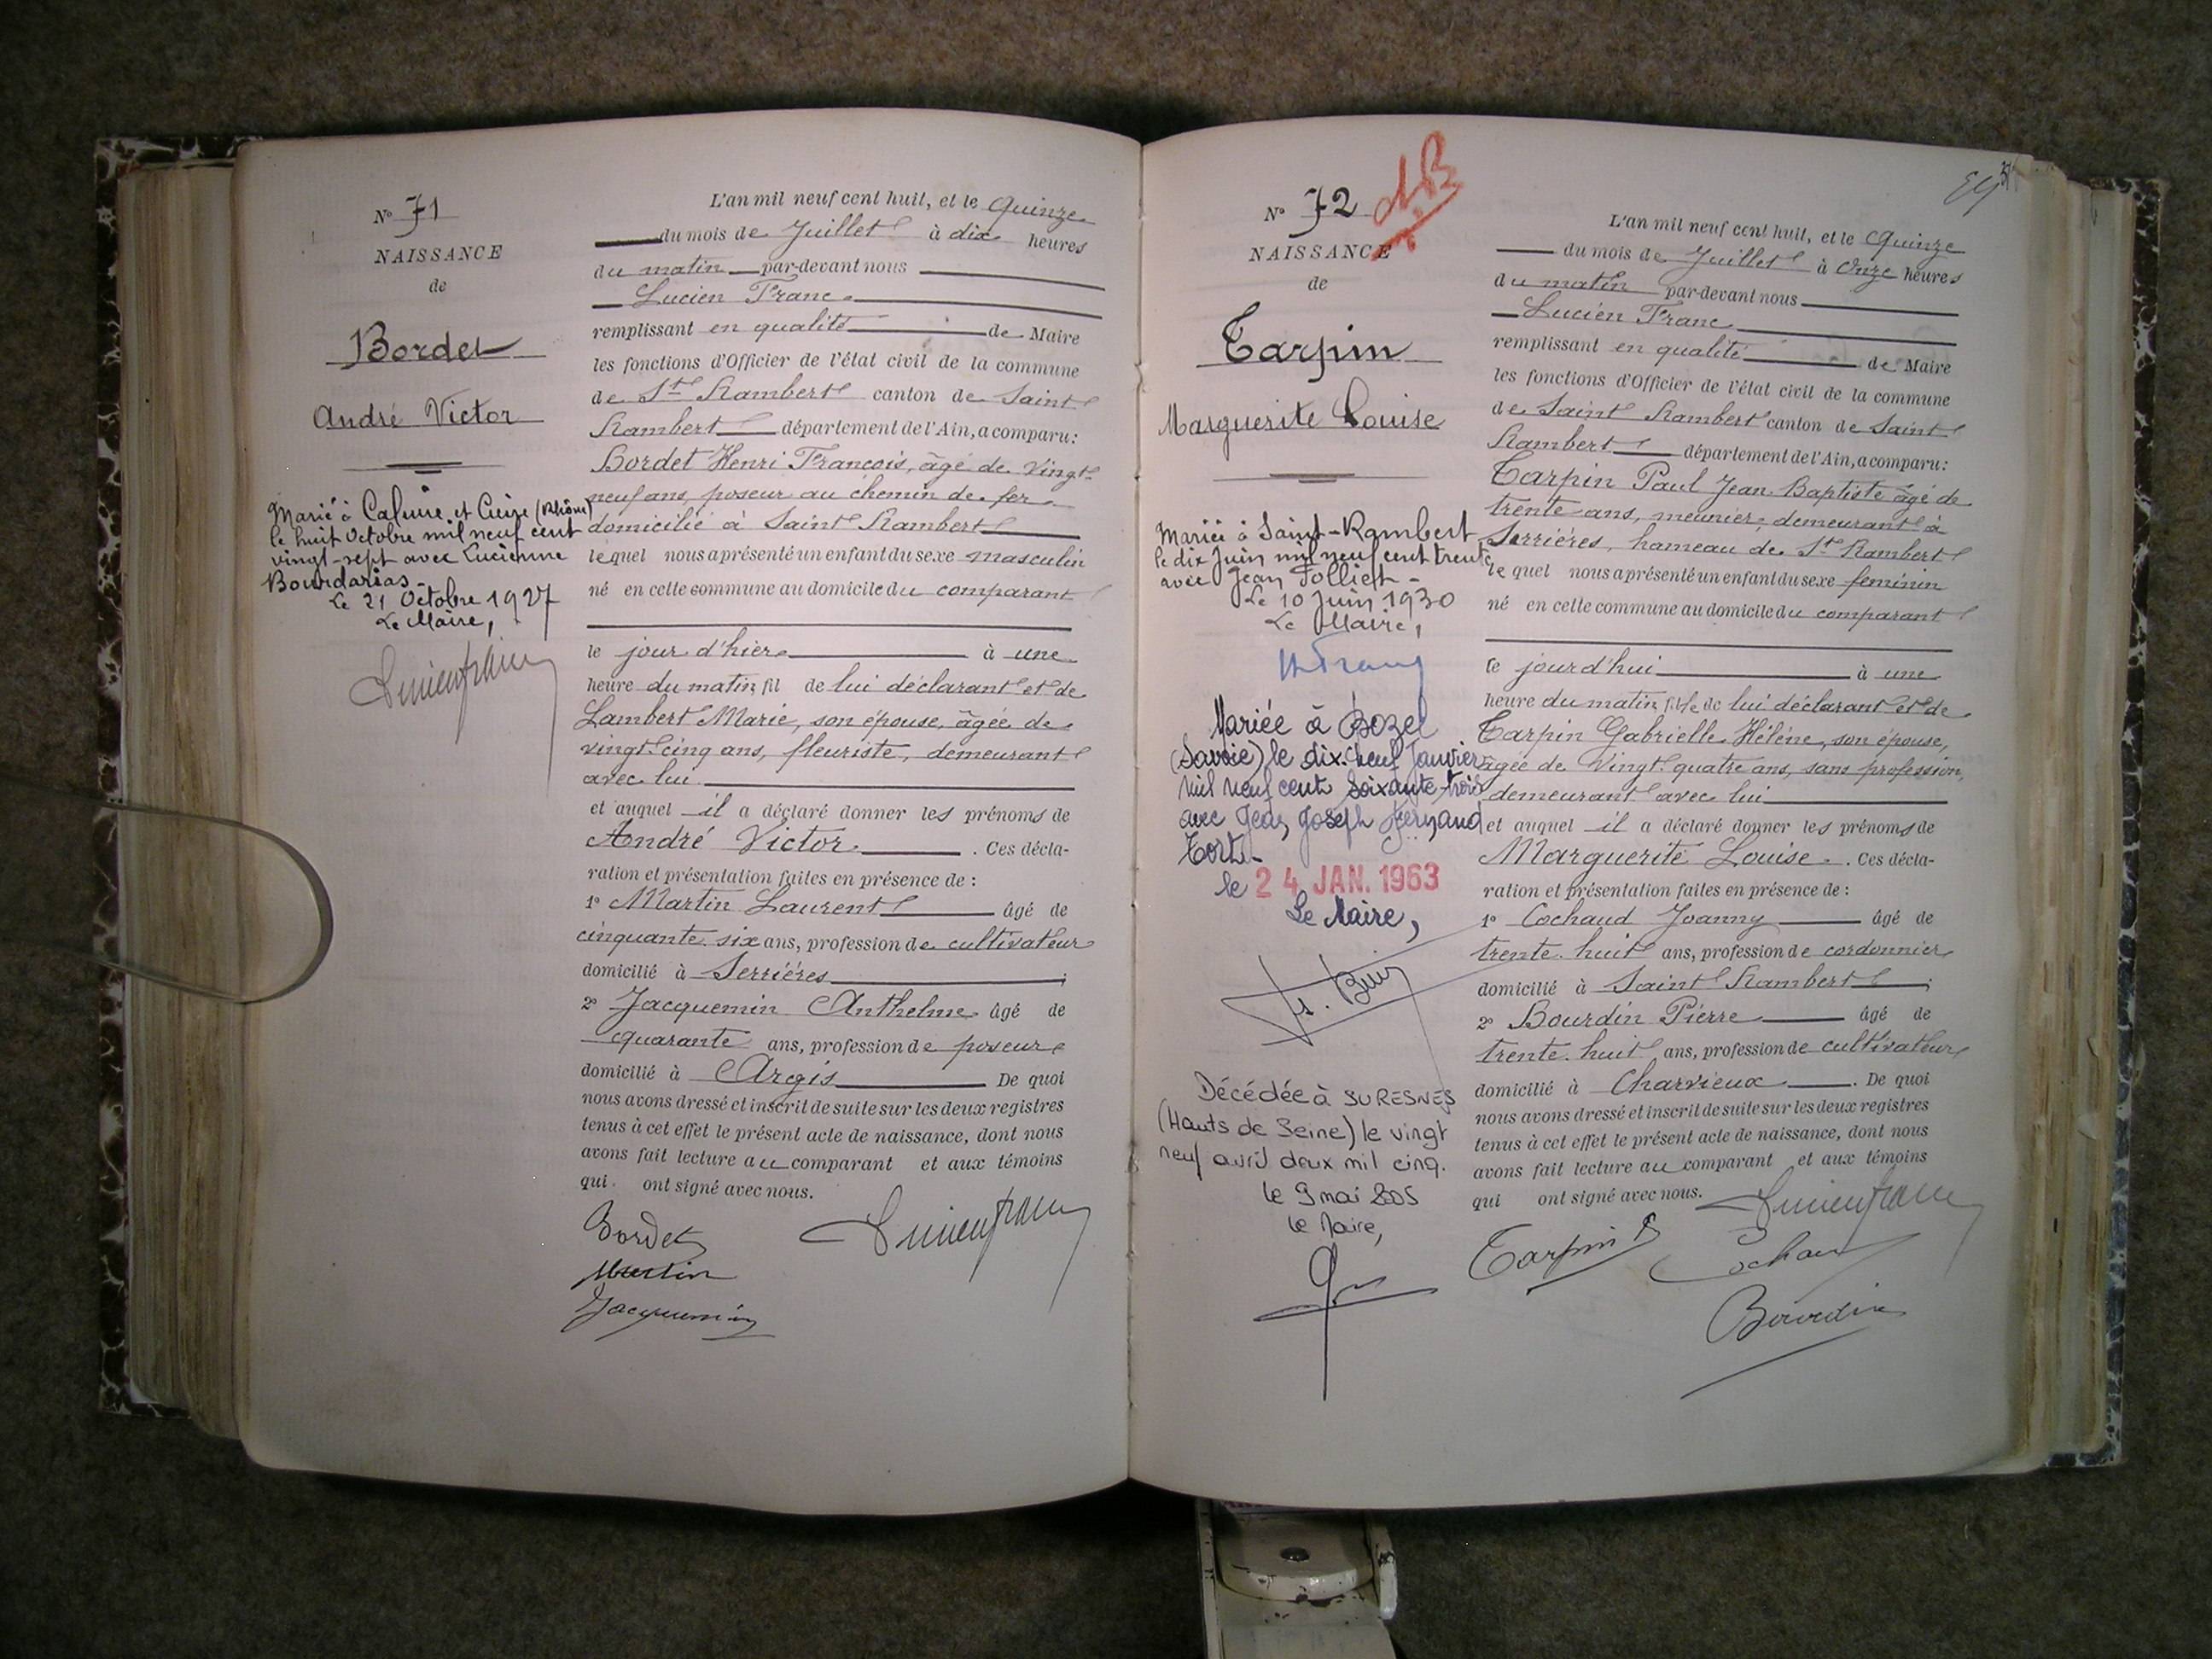 N° 71
NAISSANCE
de
Bordet
André Victor
Marié à Caluire et Cuire (Rhône)
le huit Octobre mil neuf cent
vingt-sept avec Lucienne
Bourdarias -
Le 21 Octobre 1927
Le Maire,
L'an mil neuf cent huit, et le Quinze
du mois de Juillet à dix heures
du matin par-devant nous
Lucien Franc
remplissant en qualité de Maire
les fonctions d'Officier de l'état civil de la commune
de St Rambert canton de Saint
Rambert département de l'Ain, a comparu:
Bordet Henri François, âgé de vingt
neuf ans, poseur au chemin de fer
domicilié à Saint Rambert
lequel nous a présenté un enfant du sexe masculin
né en cette commune au domicile du comparant
le jour d'hier à une
heure du matin fil de lui déclarant et de
Lambert Marie, son épouse, âgée de
vingt cinq ans, fleuriste, demeurant
avec lui
et auquel il a déclaré donner les prénoms de
André Victor . Ces décla-
ration et présentation faites en présence de :
1° Martin Laurent âgé de
cinquante six ans, profession de cultivateur
domicilié à Serrières ;
2° Jacquemin Anthelme âgé de
quarante ans, profession de poseur
domicilié à Argis De quoi
nous avons dressé et inscrit de suite sur les deux registres
tenus à cet effet le présent acte de naissance, dont nous
avons fait lecture au comparant et aux témoins
qui ont signé avec nous.
Bordet
Lucien Franc
Martin
Jacquemin
N° 72
AB
NAISSANCE
de
Tarpin
Marguerite Louise
Mariée à Saint-Rambert
le dix Juin mil neuf cent trente
avec Jean Folliet -
Le 10 Juin 1930
Le Maire,
Mariée à Bozel
(Savoie) le dix-neuf Janvier
mil neuf cent soixante-trois
avec Jean Joseph Fernand
le 24 JAN. 1963
Le Maire,
Décédée à SURESNES
(Hauts de Seine) le vingt
neuf avril deux mil cinq.
le 9 mai 2005
le Maire,
L'an mil neuf cent huit, et le Quinze
du mois de Juillet à Onze heures
du matin par-devant nous
Lucien Franc
remplissant en qualité de Maire
les fonctions d'Officier de l'état civil de la commune
de Saint Rambert canton de Saint
Rambert département de l'Ain, a comparu:
Tarpin Paul Jean-Baptiste âgé de
trente ans, meunier, demeurant à
Serrières, hameau de St Rambert
lequel nous a présenté un enfant du sexe féminin
né en cette commune au domicile du comparant
ce jourd'hui à une
heure du matin fille de lui déclarant et de
Tarpin Gabrielle Hélène, son épouse,
âgée de Vingt quatre ans, sans profession,
demeurant avec lui
et auquel il a déclaré donner les prénoms de
Marguerite Louise . Ces décla-
ration et présentation faites en présence de :
1° Cochaud Joanny âgé de
trente huit ans, profession de cordonnier
domicilié à Saint Rambert ;
2° Bourdin Pierre âgé de
trente huit ans, profession de cultivateur
domicilié à Charvieux . De quoi
nous avons dressé et inscrit de suite sur les deux registres
tenus à cet effet le présent acte de naissance, dont nous
avons fait lecture au comparant et aux témoins
qui ont signé avec nous.
Lucien Franc
Tarpin P
Bourdin